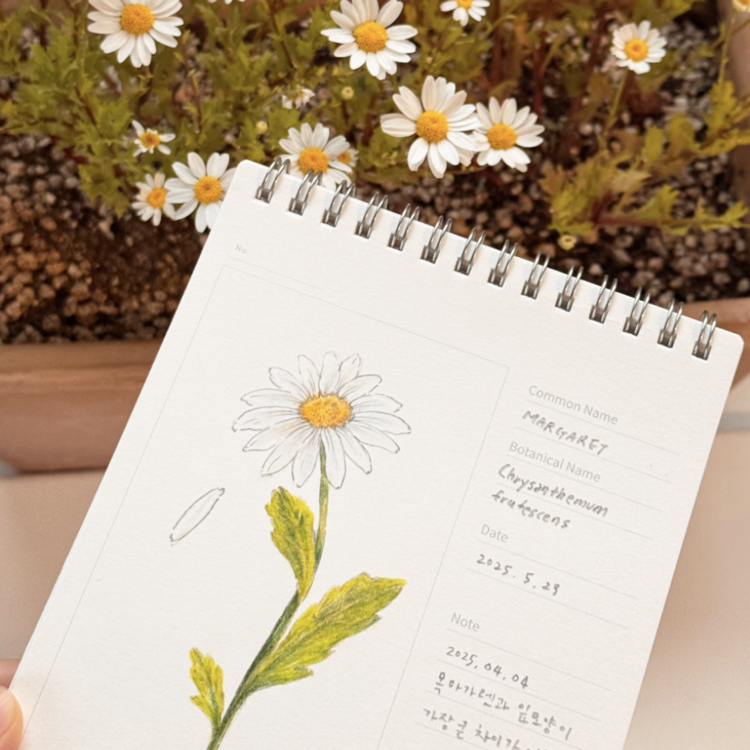 No.
Common Name
MARGARET
Botanical Name
Chrysanthemum
frutescens
Date
2025. 5. 29
Note
2025. 04. 04
목마가렛과 잎모양이
가장 큰 차이가